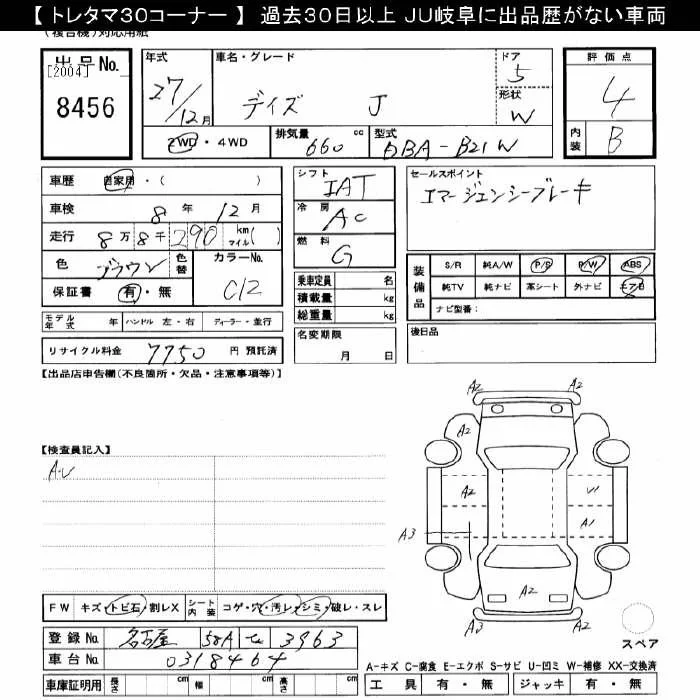 【 トレタマ30コーナー 】 過去30日以上 JU岐阜に出品歴がない車両
(複合機)対応用紙
出品No.
[2004]
8456
年式 27/12月
車名・グレード デイズ J
ドア 5
形状 W
2WD・4WD
排気量 660 cc
型式 DBA-B21W
評価点 4
内装 B
車歴 自家用・( )
車検 8年 12月
走行 8万8千290 km マイル( )
色 ブラウン 色替
カラーNo. C12
保証書 有・無
モデル年式 年 ハンドル 左・右 ディーラー・並行
リサイクル料金 7750 円 預託済
シフト IAT
冷房 AC
燃料 G
乗車定員 名
積載量 kg
総重量 kg
名変期限 月 日
セールスポイント
エマージェンシーブレーキ
装備品 S/R 純A/W P/S P/W ABS
純TV 純ナビ 革シート 外ナビ エアB
ナビ型番:
後日品
【出品店申告欄(不良箇所・欠品・注意事項等)】
【検査員記入】
A-U
A2 A2
A2
A2 U1
A3 A1
A2
A3 A2
スペア
FW キズ・トビ石・割レX シート内装 コゲ・穴・汚レ・シミ・破レ・スレ
登録No. 名古屋 58A 3963
車台No. 0318464
車庫証明用 長さ cm 幅 cm 高さ cm
A-キズ C-腐食 E-エクボ S-サビ U-凹ミ W-補修 XX-交換済
工具 有・無 ジャッキ 有・無